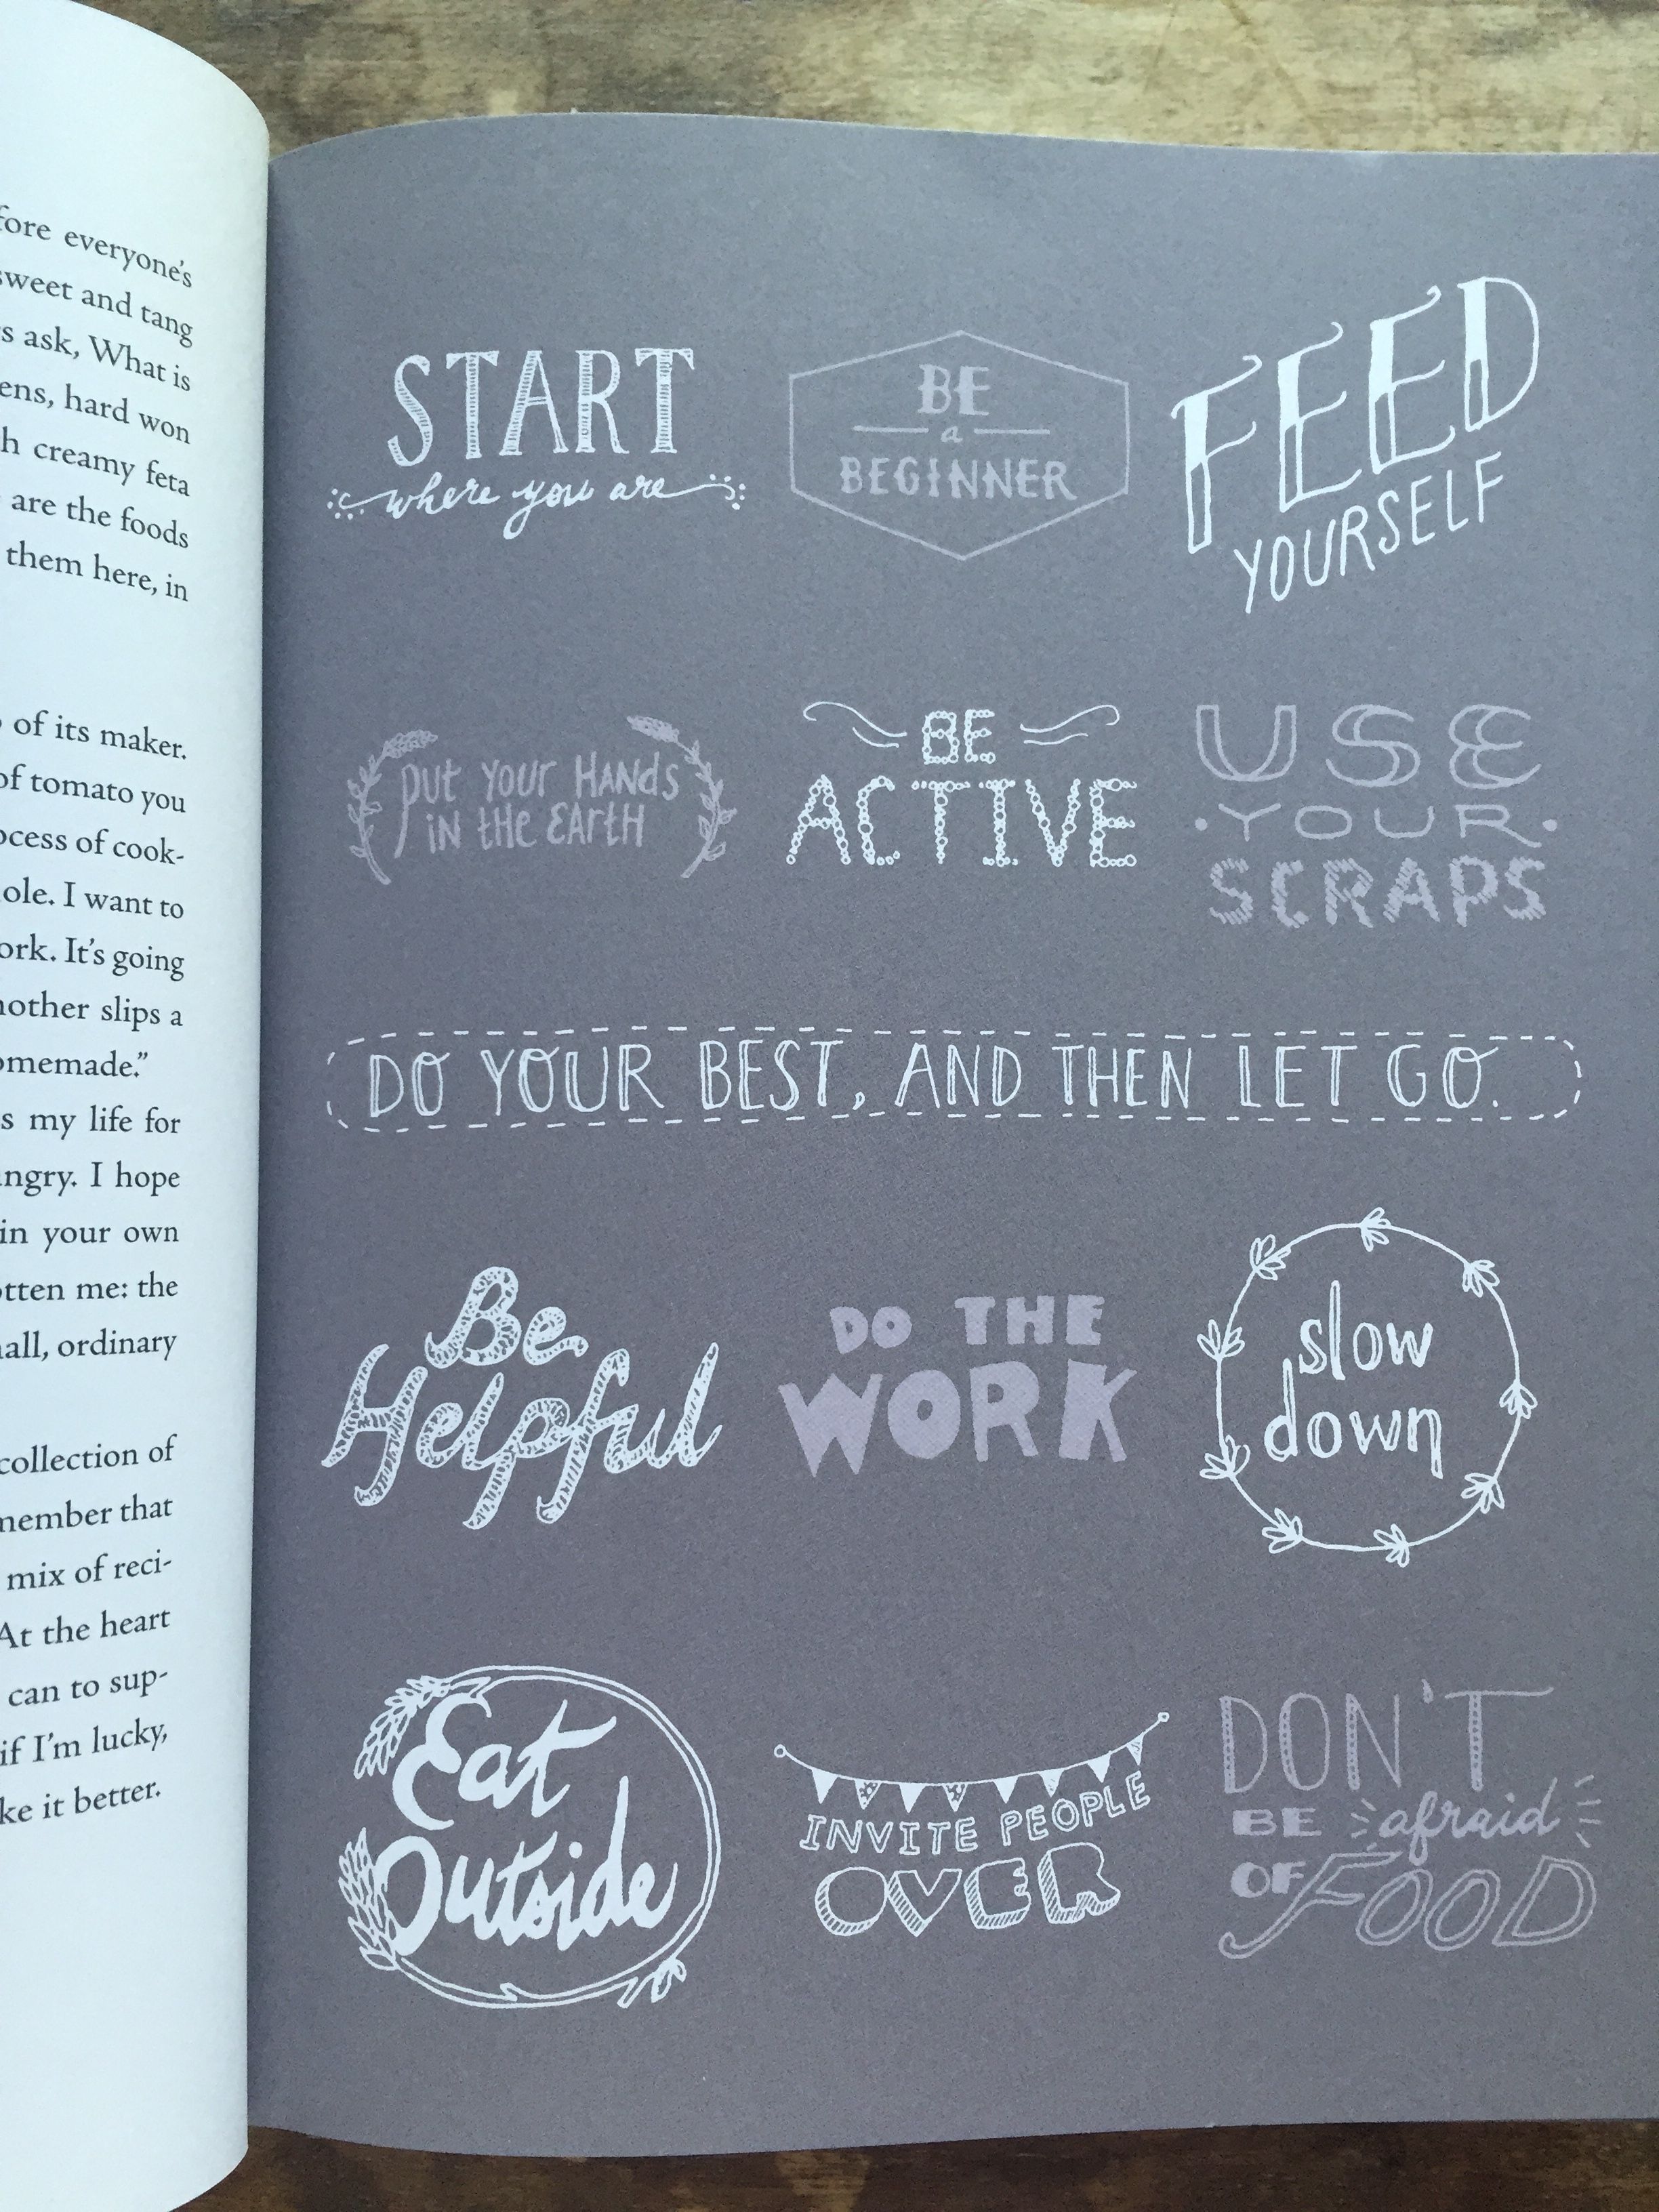 everyone's
sweet and tang
s ask, What is
hard won
creamy feta
are the foods
them here, in
of its maker.
of tomato you
of cook-
I want to
It's going
slips a
s my life for
I hope
in your own
me: the
ordinary
collection of
that
mix of reci-
At the heart
can to sup-
if I'm lucky,
it better.
START
where you are
BE
a
BEGINNER
FEED
YOURSELF
put YOUR HANds
iN tHe EARtH
BE
ACTIVE
USE
·YOUR·
SCRAPS
DO YOUR BEST, AND THEN LET GO.
Be
Helpful
DO THE
WORK
slow
down
Eat
Outside
INVITE PEOPLE
OVER
DON'T
BE afraid
OF FOOD